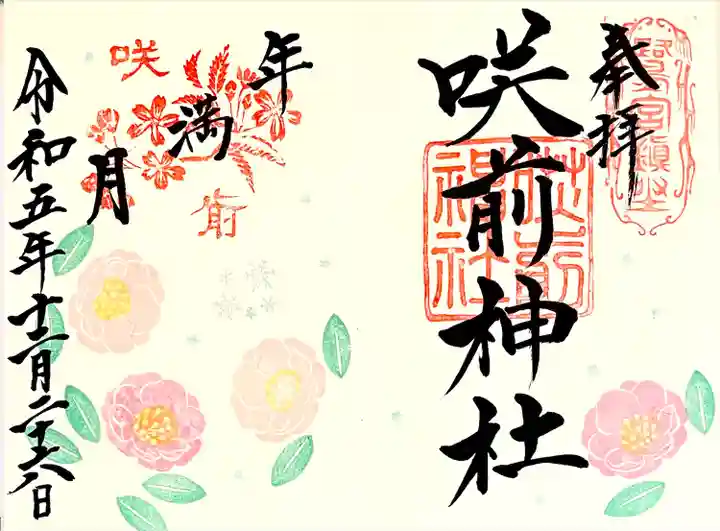 奉拝
鷺宮鎮座
咲前神社
咲前神社
年
満
月
咲
前
令和五年十二月二十六日